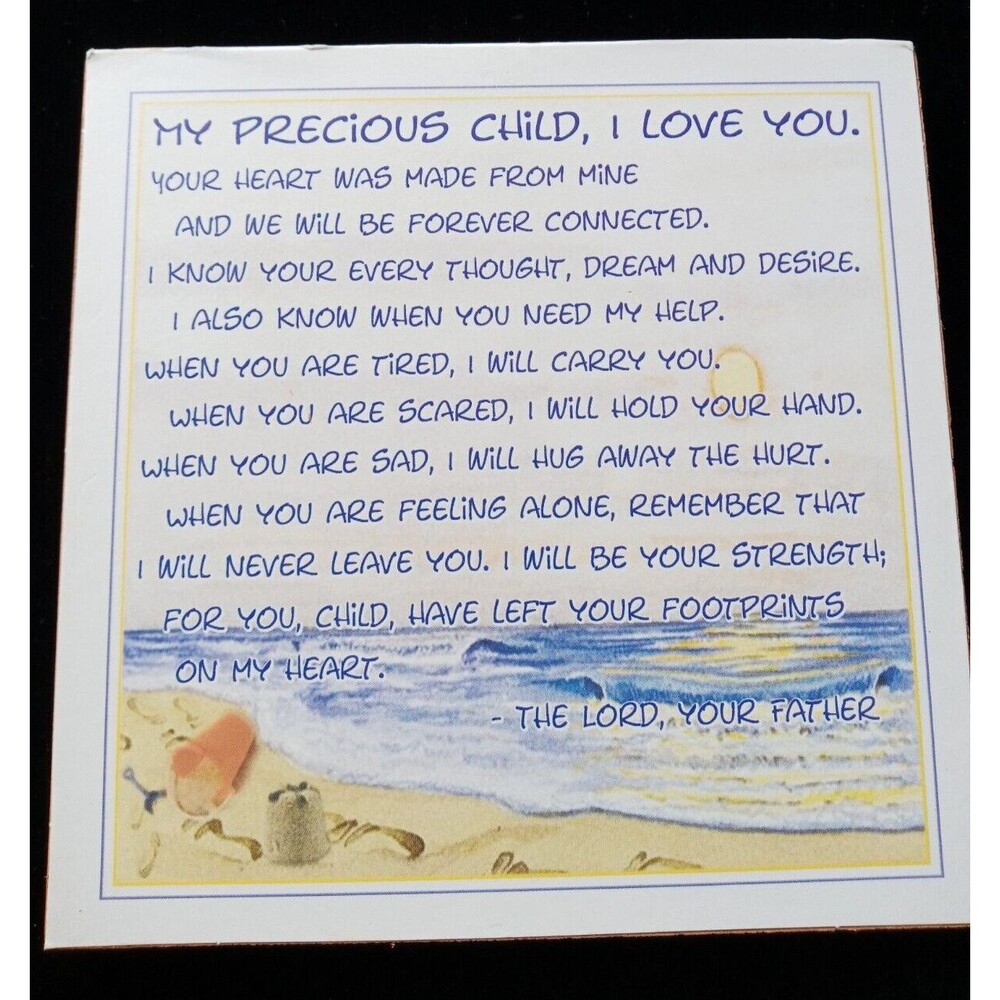 MY PRECiOUS CHiLD, I LOVE YOU.
YOUR HEART WAS MADE FROM MiNE
AND WE WiLL BE FOREVER CONNECTED.
I KNOW YOUR EVERY THOUGHT, DREAM AND DESiRE.
I ALSO KNOW WHEN YOU NEED MY HELP.
WHEN YOU ARE TiRED, I WiLL CARRY YOU.
WHEN YOU ARE SCARED, I WiLL HOLD YOUR HAND.
WHEN YOU ARE SAD, I WiLL HUG AWAY THE HURT.
WHEN YOU ARE FEELiNG ALONE, REMEMBER THAT
I WiLL NEVER LEAVE YOU. I WiLL BE YOUR STRENGTH;
FOR YOU, CHiLD, HAVE LEFT YOUR FOOTPRiNTS
ON MY HEART.
- THE LORD, YOUR FATHER